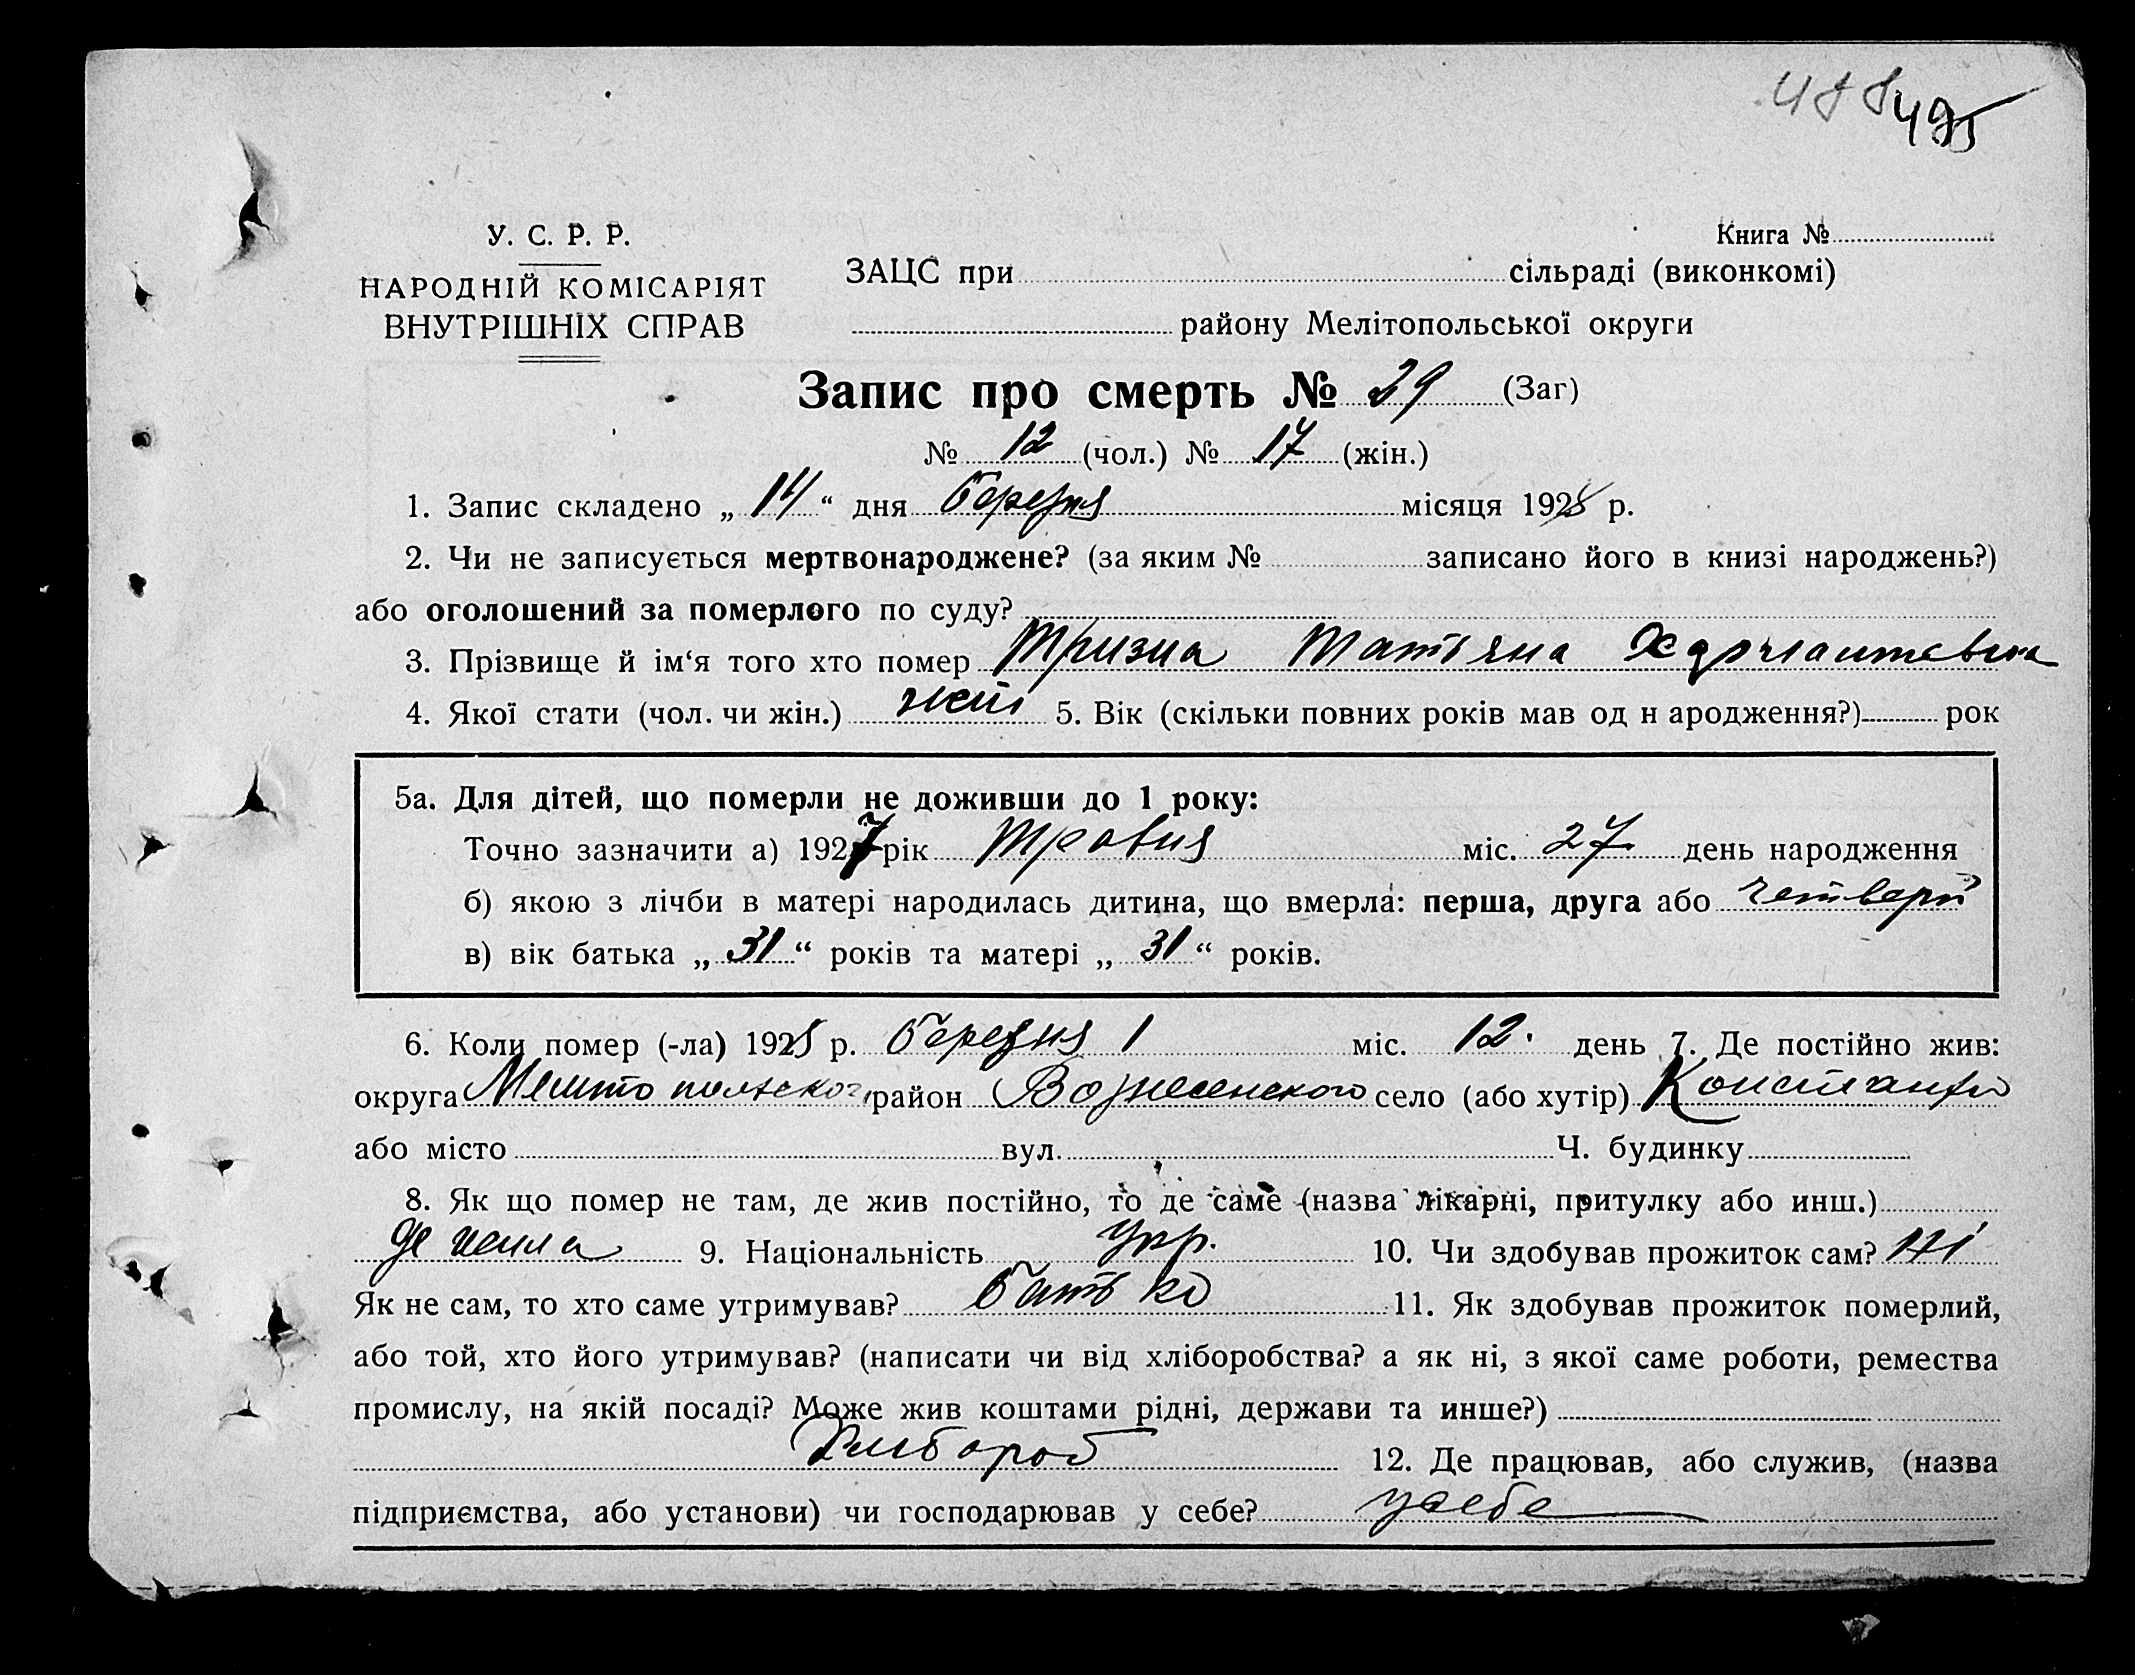 488 495
У. С. Р. Р.
Книга №
НАРОДНІЙ КОМІСАРІЯТ
ВНУТРІШНІХ СПРАВ
ЗАЦС при сільраді (виконкомі)
району Мелітопольської округи
Запис про смерть № 29 (Заг)
№ 12 (чол.) № 17 (жін.)
1. Запис складено „ 14 “ дня березня місяця 1928 р.
2. Чи не записується мертвонароджене? (за яким № записано його в книзі народжень?)
або оголошений за померлого по суду?
3. Прізвище й ім‘я того хто помер Тризна Татьяна
4. Якої стати (чол. чи жін.) жін 5. Вік (скільки повних років мав од н ародження?) рок
5а. Для дітей, що померли не доживши до 1 року:
Точно зазначити а) 1927 рік Травня міс. 27 день народження
б) якою з лічби в матері народилась дитина, що вмерла: перша, друга або
в) вік батька „ 31 “ років та матері „ 31 “ років.
6. Коли помер (-ла) 1928 р. березня міс. 12 день 7. Де постійно жив:
округа район Вознесенского село (або хутір)
або місто вул. Ч. будинку
8. Як що помер не там, де жив постійно, то де саме (назва лікарні, притулку або инш.)
де жила 9. Національність укр. 10. Чи здобував прожиток сам? Ні
Як не сам, то хто саме утримував? батько 11. Як здобував прожиток померлий,
або той, хто його утримував? (написати чи від хліборобства? а як ні, з якої саме роботи, ремества
промислу, на якій посаді? Може жив коштами рідні, держави та инше?)
Хлібороб 12. Де працював, або служив, (назва
підприємства, або установи) чи господарював у себе? у себе